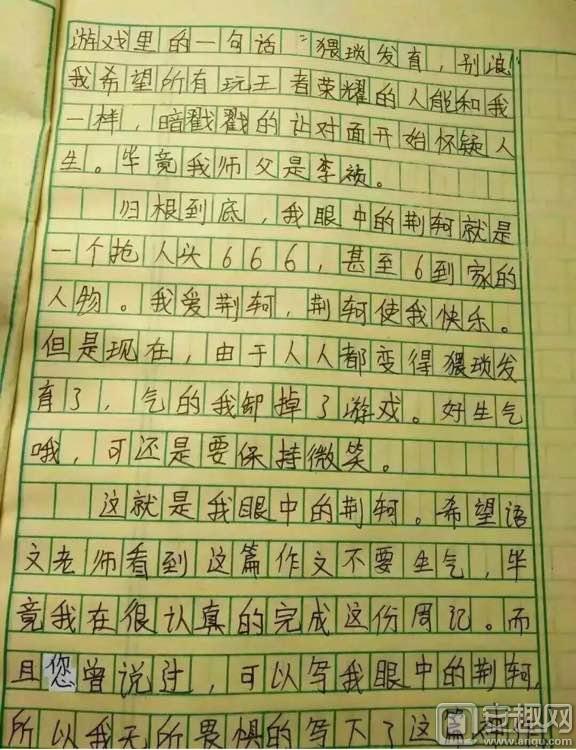 游戏里的一句话“猥琐发育，别浪
我希望所有玩王者荣耀的人能和我
一样，暗戳戳的让对面开始怀疑人
生。毕竟我师父是李祯。
归根到底，我眼中的荆轲就是
一个抢人头666，甚至6到家的
人物。我爱荆轲，荆轲使我快乐。
但是现在，由于人人都变得猥琐发
育了，气的我卸掉了游戏。好生气
哦，可还是要保持微笑。
这就是我眼中的荆轲。希望语
文老师看到这篇作文不要生气，毕
竟我在很认真的完成这份周记。而
且您曾说过，可以写我眼中的荆轲，
所以我无所畏惧的写下了这篇
安趣网
www.anqu.com